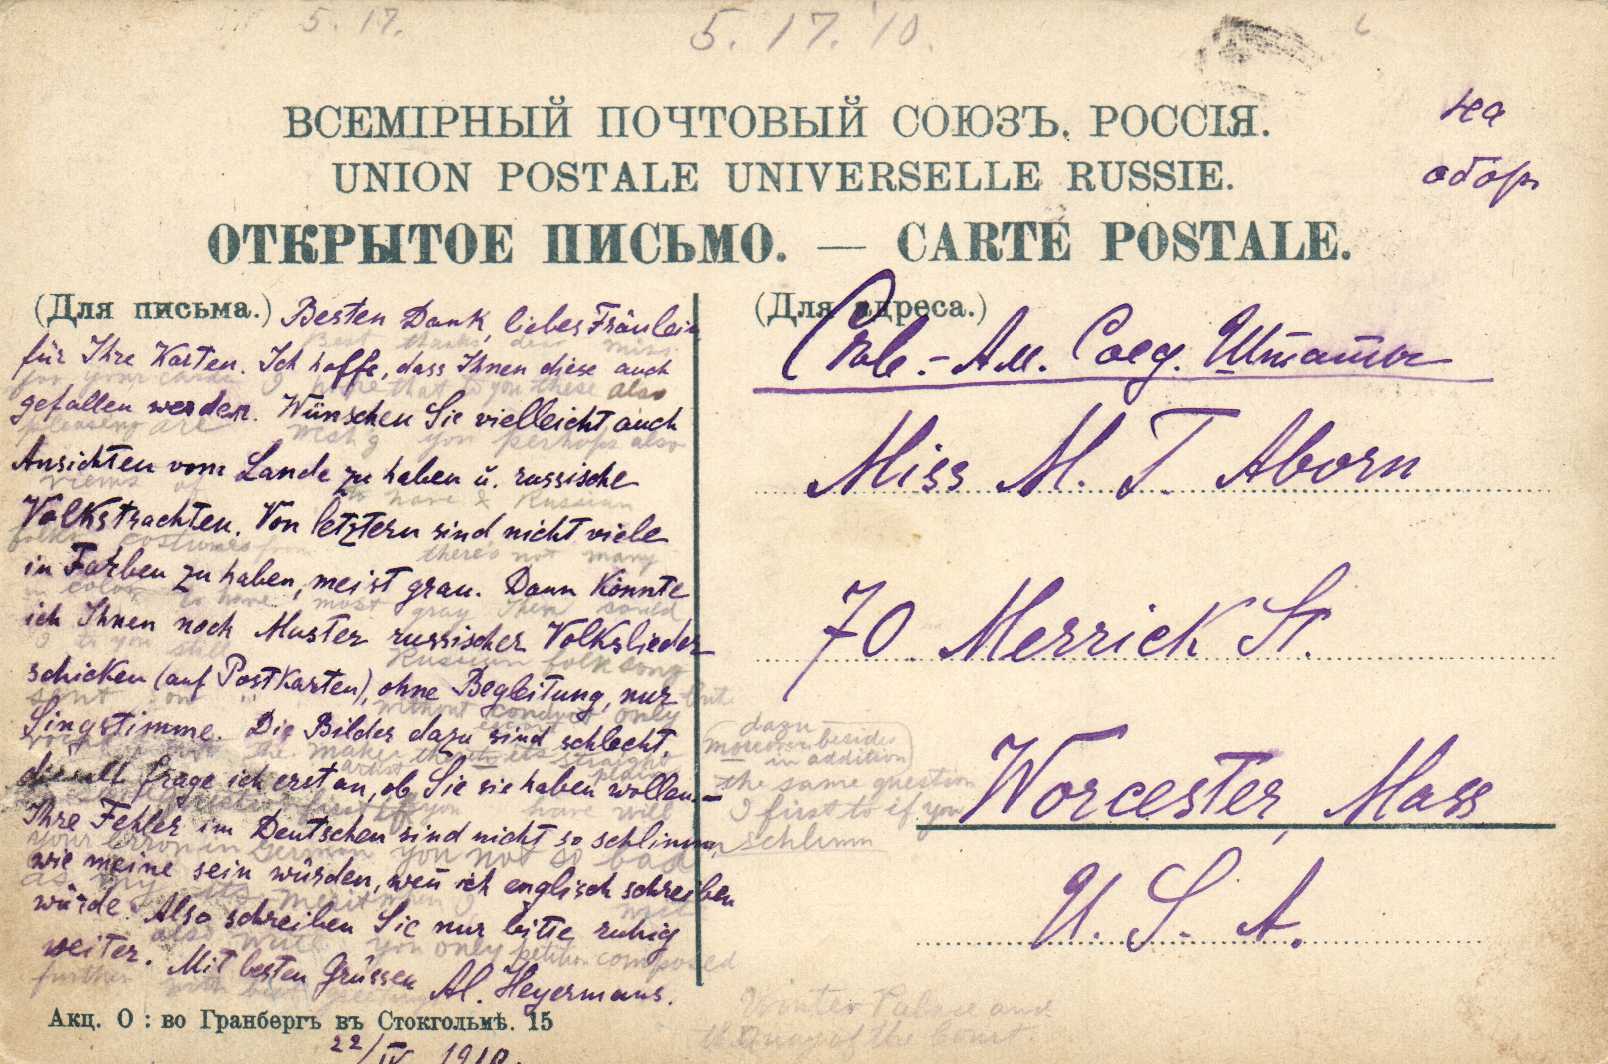 5. 17.
5. 17. '10.
на
обор
ВСЕМІРНЫЙ ПОЧТОВЫЙ СОЮЗЪ. РОССІЯ.
UNION POSTALE UNIVERSELLE RUSSIE.
ОТКРЫТОЕ ПИСЬМО. — CARTE POSTALE.
(Для письма.) Besten Dank, liebes Fräulein
Best thanks dear miss
für Ihre Karten. Ich hoffe, dass Ihnen diese auch
for your cards I hope that to you these also
gefallen werden. Wünschen Sie vielleicht auch
pleasing are wish you perhaps also
Ansichten vom Lande zu haben u. russische
views of to have & Russian
Volkstrachten. Von letztern sind nicht viele
folks costumes from there's not many
in Farben zu haben, meist grau. Dann könnte
in color to have most gray Then could
ich Ihnen noch Muster russischer Volkslieder
I to you still Russian folk song
schicken (auf Postkarten), ohne Begleitung, nur
sent on without conduct only but
Singstimme. Die Bilder dazu sind schlecht,
the maker artist its straight plain
desshalb frage ich erst an, ob Sie sie haben wollen.—
question first if you have will
Ihre Fehler im Deutschen sind nicht so schlimm,
your error in German you not so bad
wie meine sein würden, wenn ich englisch schreiben
as my its
würde. Also schreiben Sie nur bitte ruhig
also write you only petition composed
weiter. Mit besten Grüssen Al. Heyermans.
further with best greetings
Акц. О : во Гранбергъ въ Стокгольмѣ. 15
22/IV 1910.
(Для адреса.)
Сѣв.-Ам. Соед. Штаты
Miss M. T. Aborn
70 Merrick St.
Worcester, Mass
U. S. A.
dazu
moreover besides
in addition
the same question
I first to if you
schlimm
Winter Palace and
the Quay of the Court.